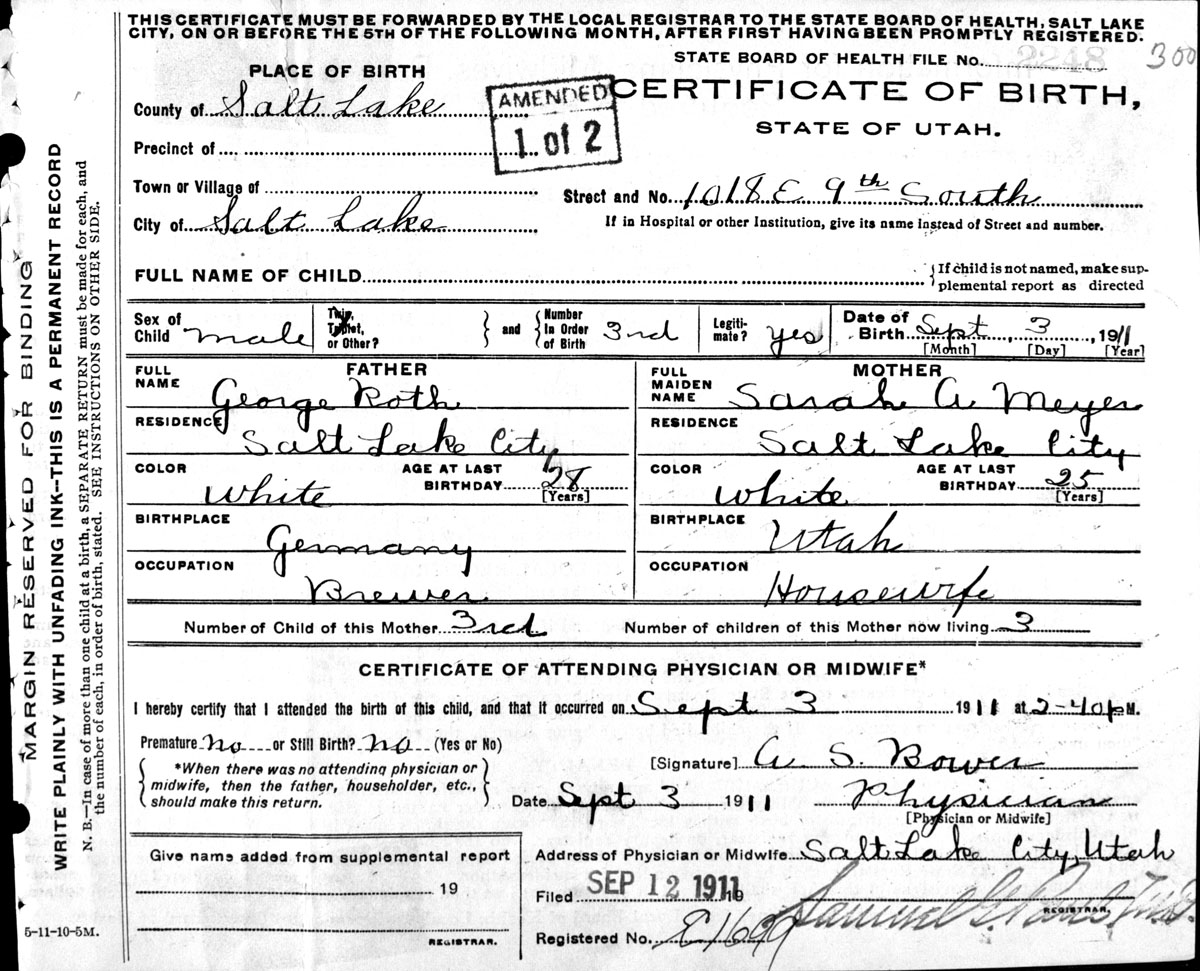 THIS CERTIFICATE MUST BE FORWARDED BY THE LOCAL REGISTRAR TO THE STATE BOARD OF HEALTH, SALT LAKE
CITY, ON OR BEFORE THE 5TH OF THE FOLLOWING MONTH, AFTER FIRST HAVING BEEN PROMPTLY REGISTERED.
STATE BOARD OF HEALTH FILE No. 2248 300
PLACE OF BIRTH
County of Salt Lake
AMENDED
1 of 2
CERTIFICATE OF BIRTH,
STATE OF UTAH.
Precinct of
Town or Village of
Street and No. 1018 E 9th South
City of Salt Lake
If in Hospital or other Institution, give its name instead of Street and number.
FULL NAME OF CHILD
{If child is not named, make sup-
plemental report as directed
Sex of Child male
Twin, Triplet, or Other?
and
Number In Order of Birth 3rd
Legiti-mate? yes
Date of Birth Sept 3, 1911
[Month] [Day] [Year]
FATHER
FULL NAME George Roth
RESIDENCE Salt Lake City
COLOR White
AGE AT LAST BIRTHDAY 28 [Years]
BIRTHPLACE Germany
OCCUPATION Brewer
MOTHER
FULL MAIDEN NAME Sarah A. Meyer
RESIDENCE Salt Lake City
COLOR White
AGE AT LAST BIRTHDAY 25 [Years]
BIRTHPLACE Utah
OCCUPATION Housewife
Number of Child of this Mother 3rd Number of children of this Mother now living 3
CERTIFICATE OF ATTENDING PHYSICIAN OR MIDWIFE*
I hereby certify that I attended the birth of this child, and that it occurred on Sept 3 1911 at 2-40 P M.
Premature no or Still Birth? no (Yes or No)
*When there was no attending physician or
midwife, then the father, householder, etc.,
should make this return.
[Signature] A. S. Bower
Date Sept 3 1911 Physician
[Physician or Midwife]
Give name added from supplemental report
19
REGISTRAR.
Address of Physician or Midwife Salt Lake City, Utah
Filed SEP 12 1911 19
REGISTRAR.
Registered No. E1699
5-11-10-5M.
MARGIN RESERVED FOR BINDING
WRITE PLAINLY WITH UNFADING INK—THIS IS A PERMANENT RECORD
N. B.—In case of more than one child at a birth, a SEPARATE RETURN must be made for each, and
the number of each, in order of birth, stated. SEE INSTRUCTIONS ON OTHER SIDE.